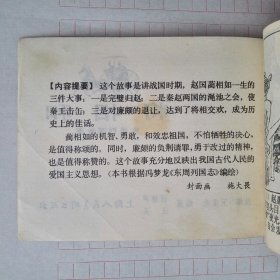 【内容提要】 这个故事是讲战国时期，赵国蔺相如一生的
三件大事：一是完璧归赵；二是秦赵两国的渑池之会，使
秦王击缶；三是对廉颇的退让，达到了将相交欢，成为历
史上的佳话。
蔺相如的机智、勇敢，和效忠祖国，不怕牺牲的决心，
是值得称颂的。同时，廉颇的负荆请罪，勇于改过的精神，
也是值得称赞的。这个故事充分地反映出我国古代人民的
爱国主义思想。（本书根据冯梦龙《东周列国志》编绘）
封面画 施大畏